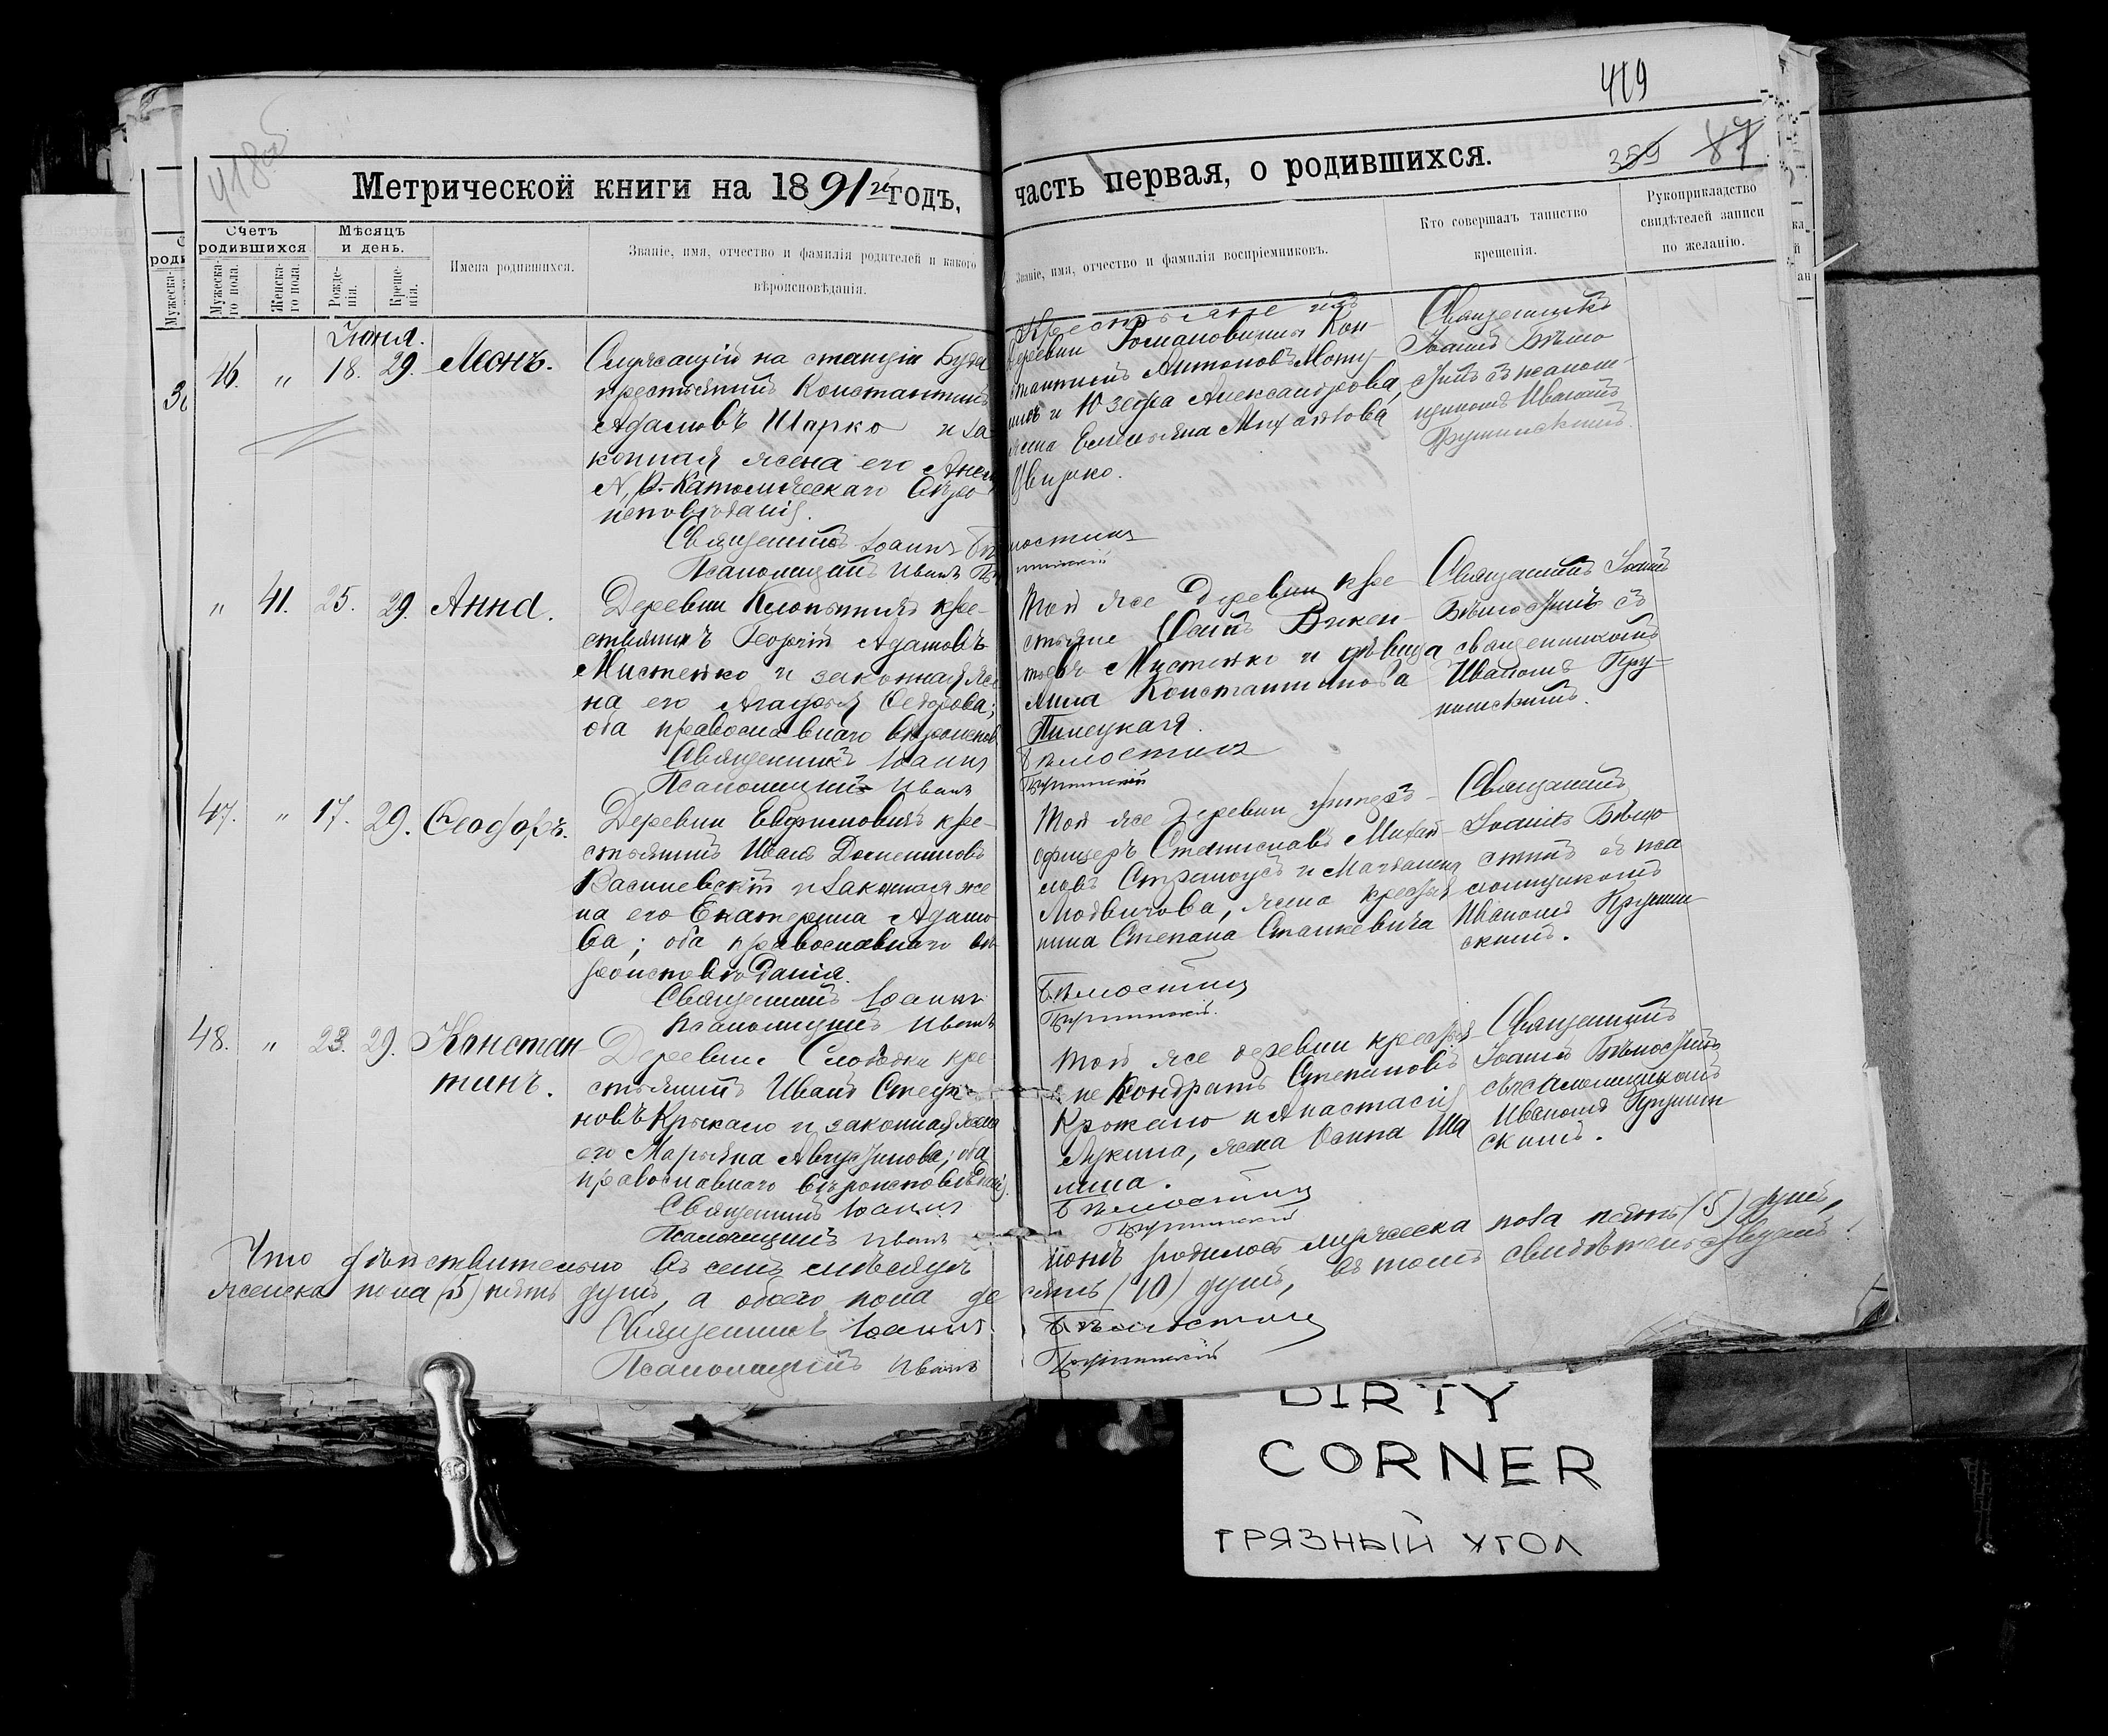 419
418об
359 87
Метрической книги на 1891й годъ,
часть первая, о родившихся.
Счетъ родившихся.
Мужеска-го пола.
Женска-го пола.
Мѣсяцъ и день.
Рожде-нія.
Креще-нія.
Имена родившихся.
Званіе, имя, отчество и фамилія родителей и какого
вѣроисповѣданія.
Званіе, имя, отчество и фамилія воспріемниковъ.
Кто совершалъ таинство
крещенія.
Рукоприкладство
свидѣтелей записи
по желанію.
Іюня.
46. " 18. 29. Леонъ.
Служащій на станціи Буда
крестьянинъ Константинъ
Адамовъ Шарко и за-
конная жена его
Р.-Католическаго вѣро
исповѣданія.
Священникъ Іоаннъ
Псаломщикъ Иванъ
Крестьяне изъ
деревни Романовичи Кон-
стантинъ Антоновъ
и Юзефа Александрова,
жена Емельяна Михайлова
Цвирко.
Священникъ
Іоаннъ Бѣло
стинъ съ псалом-
щикомъ Иваномъ
" 41. 25. 29. Анна.
Деревни кре-
стьянинъ Георгій Адамовъ
Мистейко и законная же
на его Агафья Ѳедорова;
оба православнаго вѣроиспов.
Священникъ Іоаннъ
Псаломщикъ Иванъ
Той же деревни кре-
стьяне Осипъ Викен-
тьевъ Мистейко и дѣвица
Константинова
Бѣлостинъ
Священникъ Іоаннъ
Бѣлостинъ съ
священникомъ
Иваномъ
47. " 17. 29. Ѳеодоръ.
Деревни Евфимовичъ кре-
стьянинъ Иванъ
Василевскій и законная же
на его Екатерина Адамо
ва; оба православнаго вѣ
роисповѣданія.
Священникъ Іоаннъ
Псаломщикъ Иванъ
Той же деревни унтеръ-
офицеръ Станиславъ Михай-
ловъ и Магдалина
Людвигова, жена крестья
нина Степана Станкевича
Бѣлостинъ
Священникъ
Іоаннъ Бѣло
стинъ съ пса
ломщикомъ
Иваномъ
скимъ.
48. " 23. 29. Констан-
тинъ.
Деревни Слободки кре-
стьянинъ Иванъ Стефа-
новъ и законная жена
его Марьяна Августинова; оба
православнаго вѣроисповѣданія.
Священникъ Іоаннъ
Псаломщикъ Иванъ
Той же деревни крестья-
не Кондратъ Степановъ
и Анастасія
Лукина, жена Осипа Ша
лина.
Бѣлостинъ
Священникъ
Іоаннъ Бѣлостинъ
съ псаломщикомъ
Иваномъ
скимъ.
Что дѣйствительно въ семъ мѣсяцѣ
іюнѣ родилось мужеска пола пять (5) душъ,
женска пола (5) пять душъ, а обоего пола де
сять (10) душъ, въ томъ свидѣтельствуемъ:
Священникъ Іоаннъ
Бѣлостинъ
Псаломщикъ Иванъ
DIRTY
CORNER
ГРЯЗНЫЙ УГОЛ